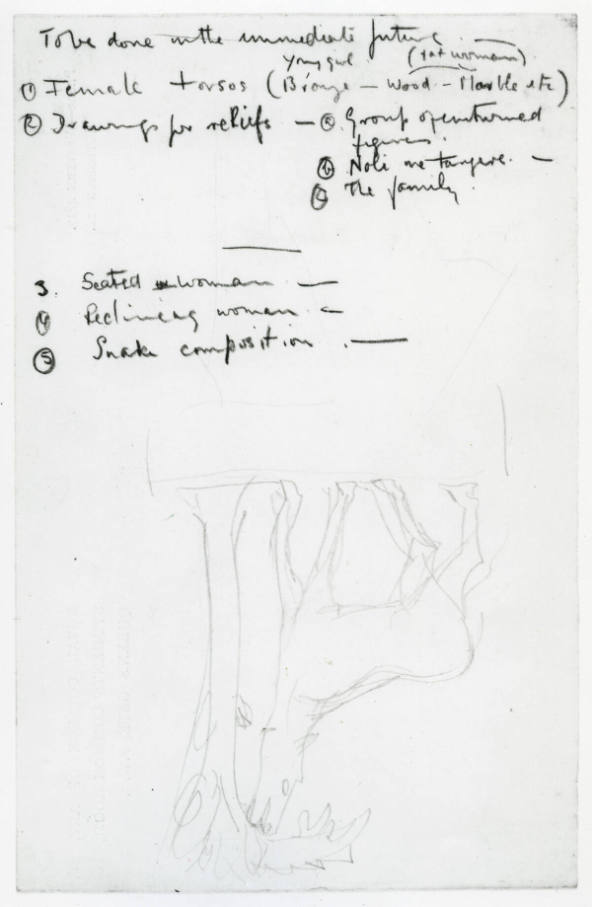 To be done in the immediate future.
young girl (fat woman)
① Female torsos (Bronze — Wood — Marble etc)
② Drawings for reliefs — ⓐ Group of
figures.
ⓑ Noli me tangere. —
ⓒ The family.
3. Seated woman —
④ Reclining woman. —
⑤ Snake composition. —